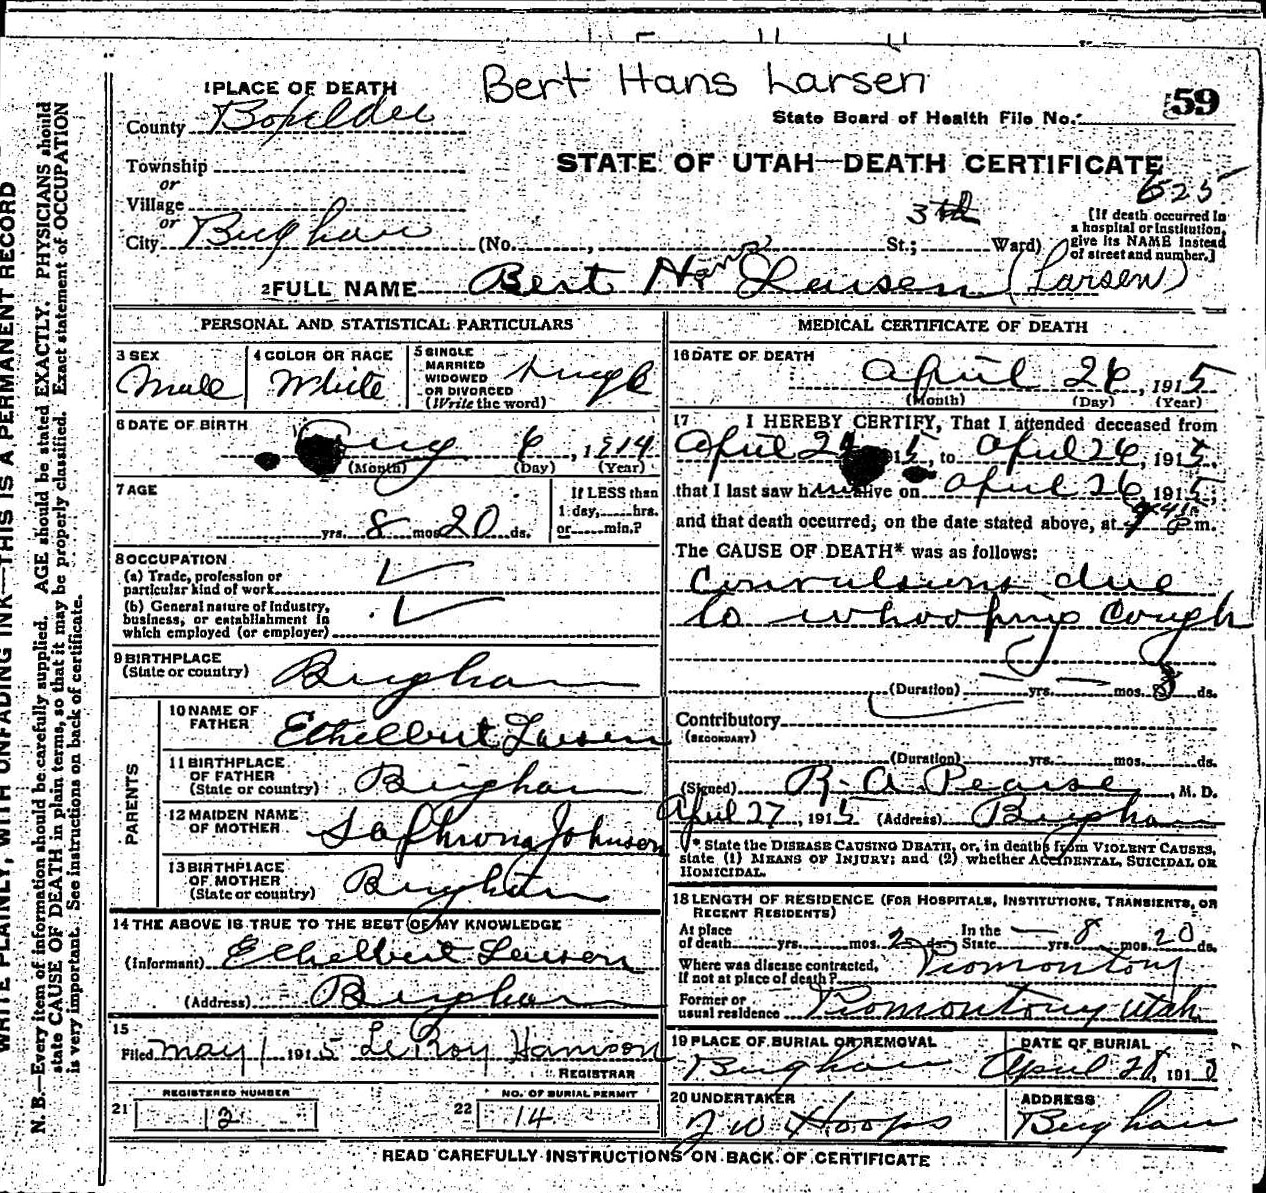 Bert Hans Larsen
1 PLACE OF DEATH
County Boxelder
59
State Board of Health File No.
Township
or
Village
or
City Brigham
STATE OF UTAH—DEATH CERTIFICATE
625
(No. , 3th St.; Ward)
[If death occurred in
a hospital or institution,
give its NAME instead
of street and number.]
2 FULL NAME Bert Hans Larsen (Larsen)
PERSONAL AND STATISTICAL PARTICULARS
3 SEX
Male
4 COLOR OR RACE
White
5 SINGLE
MARRIED
WIDOWED
OR DIVORCED
(Write the word)
Single
6 DATE OF BIRTH
Aug 6, 1914
(Month) (Day) (Year)
7 AGE
yrs. 8 mos 20 ds.
If LESS than
1 day, hrs.
or min.?
8 OCCUPATION
(a) Trade, profession or
particular kind of work
(b) General nature of Industry,
business, or establishment in
which employed (or employer)
9 BIRTHPLACE
(State or country)
Brigham
PARENTS
10 NAME OF
FATHER
Ethelbert Larsen
11 BIRTHPLACE
OF FATHER
(State or country)
Brigham
12 MAIDEN NAME
OF MOTHER
Saphrona Johnson
13 BIRTHPLACE
OF MOTHER
(State or country)
Brigham
14 THE ABOVE IS TRUE TO THE BEST OF MY KNOWLEDGE
(Informant) Ethelbert Larsen
(Address) Brigham
15
Filed May 1 1915 LeRoy Harrison
REGISTRAR
21
REGISTERED NUMBER
12
22
NO. OF BURIAL PERMIT
14
MEDICAL CERTIFICATE OF DEATH
16 DATE OF DEATH
April 26, 1915
(Month) (Day) (Year)
17 I HEREBY CERTIFY, That I attended deceased from
April 24 1915, to April 26, 1915,
that I last saw him alive on April 26, 1915,
and that death occurred, on the date stated above, at P m.
The CAUSE OF DEATH* was as follows:
Convulsions due
to whooping cough
(Duration) yrs. mos. 8 ds.
Contributory
(SECONDARY)
(Duration) yrs. mos. ds.
(Signed) R. A. Pearse, M. D.
April 27, 1915 (Address) Brigham
* State the DISEASE CAUSING DEATH, or, in deaths from VIOLENT CAUSES,
state (1) MEANS OF INJURY; and (2) whether ACCIDENTAL, SUICIDAL OR
HOMICIDAL.
18 LENGTH OF RESIDENCE (FOR HOSPITALS, INSTITUTIONS, TRANSIENTS, OR
RECENT RESIDENTS)
At place
of death yrs. mos. 2 ds.
In the
State yrs. 8 mos. 20 ds.
Where was disease contracted,
if not at place of death? Promontory
Former or
usual residence Promontory Utah
19 PLACE OF BURIAL OR REMOVAL
Brigham
DATE OF BURIAL
April 28, 191
20 UNDERTAKER
J W Hoops
ADDRESS
Brigham
READ CAREFULLY INSTRUCTIONS ON BACK OF CERTIFICATE
WRITE PLAINLY, WITH UNFADING INK—THIS IS A PERMANENT RECORD
N. B.—Every item of information should be carefully supplied. AGE should be stated EXACTLY. PHYSICIANS should
state CAUSE OF DEATH in plain terms, so that it may be properly classified. Exact statement of OCCUPATION
is very important. See instructions on back of certificate.